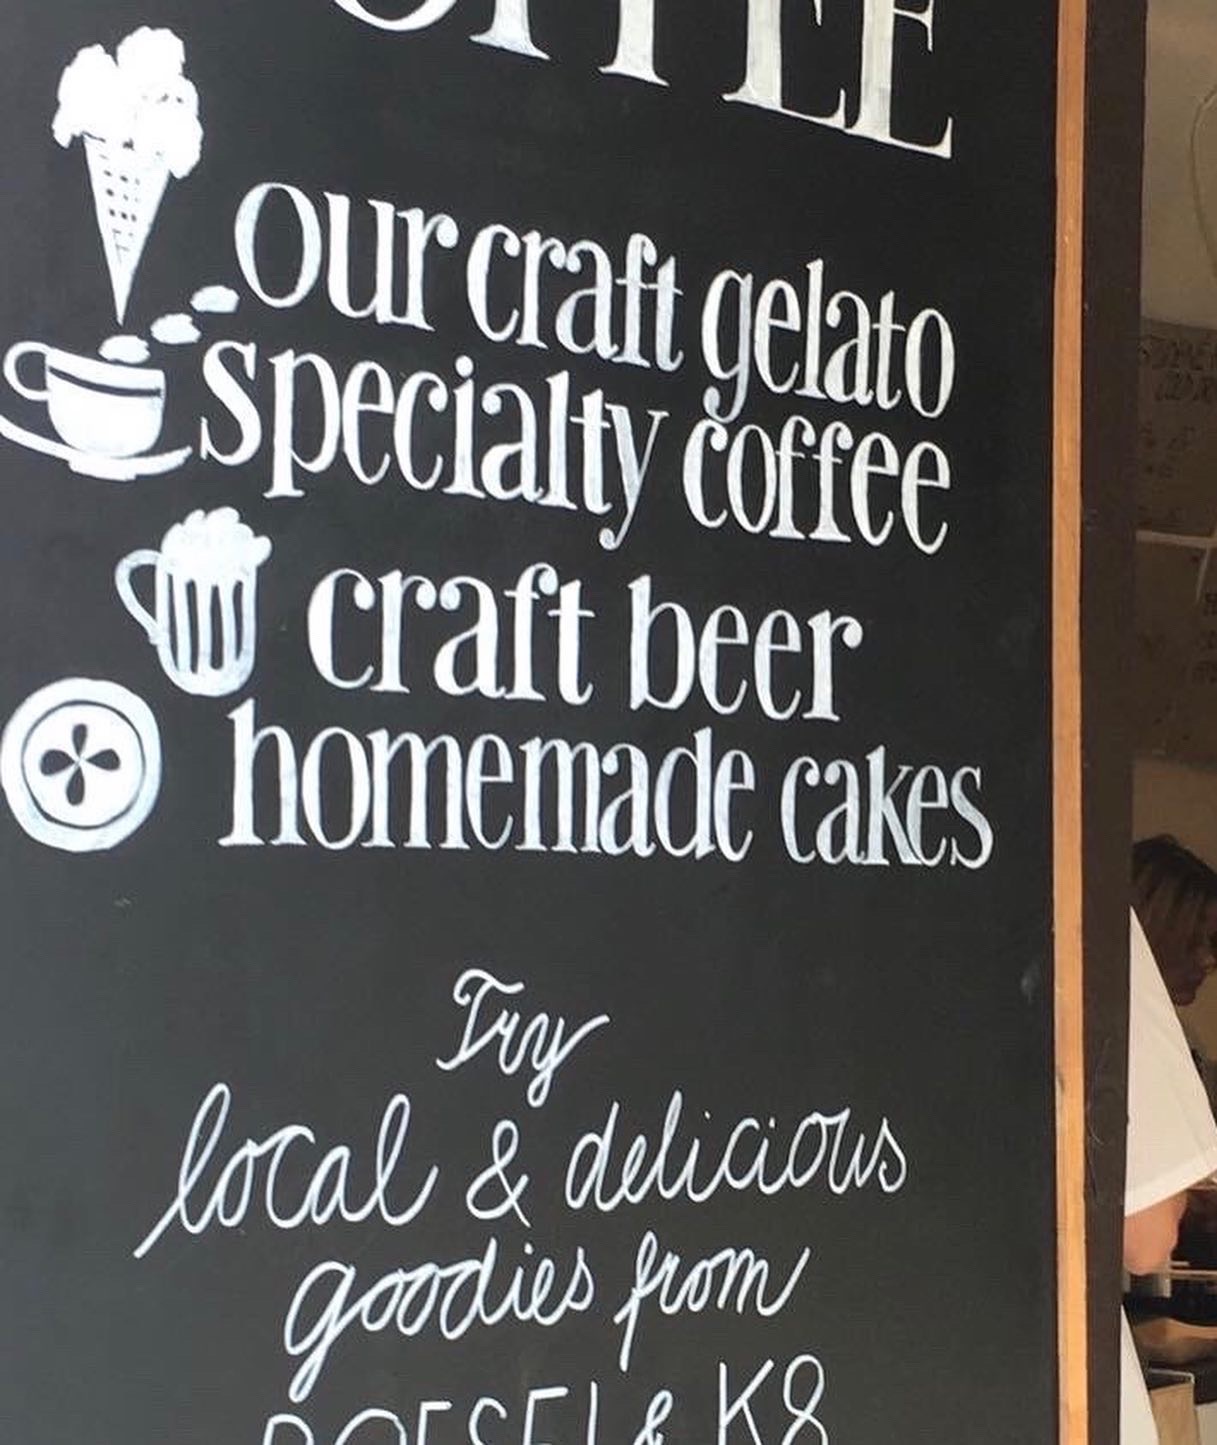 our craft gelato
specialty coffee
craft beer
homemade cakes
Try
local & delicious
goodies from
& K8